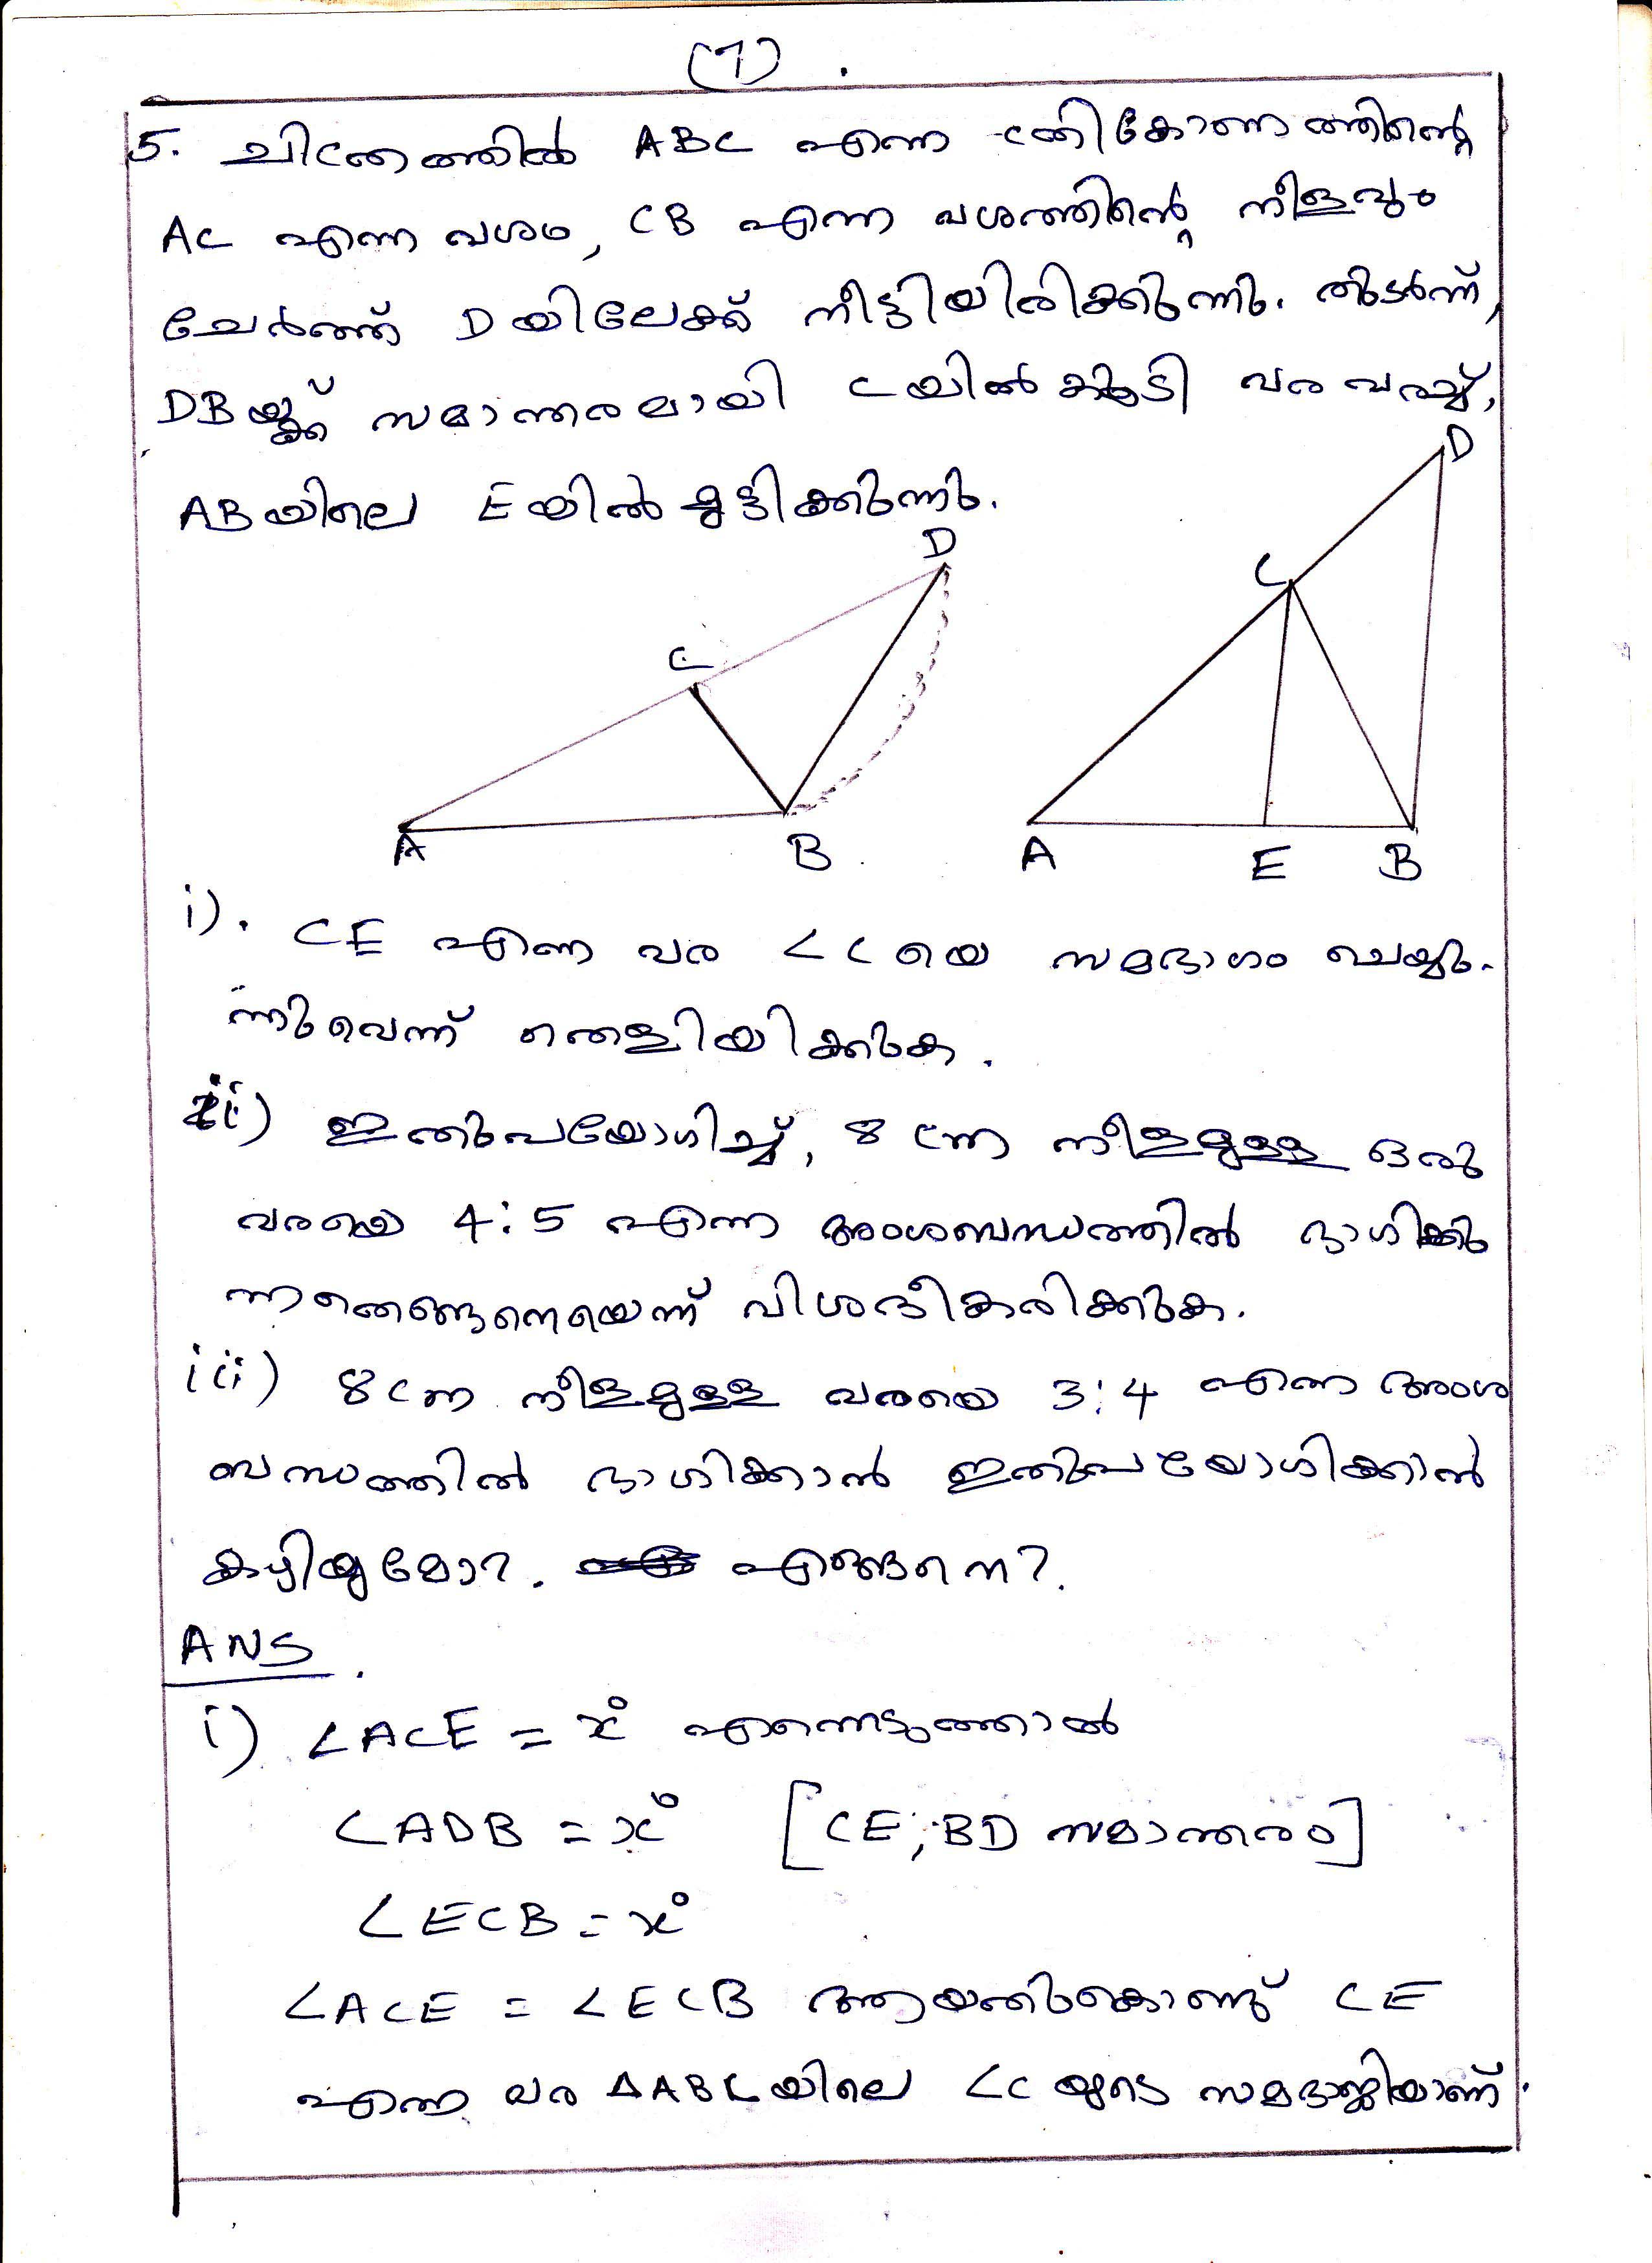 (7).
5. ചിത്രത്തിൽ ABC എന്ന ത്രികോണത്തിന്റെ
AC എന്ന വശം, CB എന്ന വശത്തിന്റെ നീളവും
ചേർത്ത് D യിലേക്ക് നീട്ടിയിരിക്കുന്നു. തുടർന്ന്,
DB യ്ക്ക് സമാന്തരമായി C യിൽക്കൂടി വര വരച്ച്,
AB യിലെ E യിൽ മുട്ടിക്കുന്നു.
D
D
C
C
A
B
A
E
B
i). CE എന്ന വര ∠C യെ സമഭാഗം ചെയ്യു-
ന്നുവെന്ന് തെളിയിക്കുക.
ii) ഇതുപയോഗിച്ച്, 8 cm നീളമുള്ള ഒരു
വരയെ 4:5 എന്ന അംശബന്ധത്തിൽ ഭാഗിക്കു
ന്നതെങ്ങനെയെന്ന് വിശദീകരിക്കുക.
iii) 8cm നീളമുള്ള വരയെ 3:4 എന്ന അംശ
ബന്ധത്തിൽ ഭാഗിക്കാൻ ഇതുപയോഗിക്കാൻ
കഴിയുമോ?. എങ്ങനെ?.
ANS.
i) ∠ACE = x° എന്നെടുത്താൽ
∠ADB = x° [CE; BD സമാന്തരം]
∠ECB = x°
∠ACE = ∠ECB ആയതുകൊണ്ട് CE
എന്ന വര ΔABC യിലെ ∠C യുടെ സമഭാജിയാണ്.